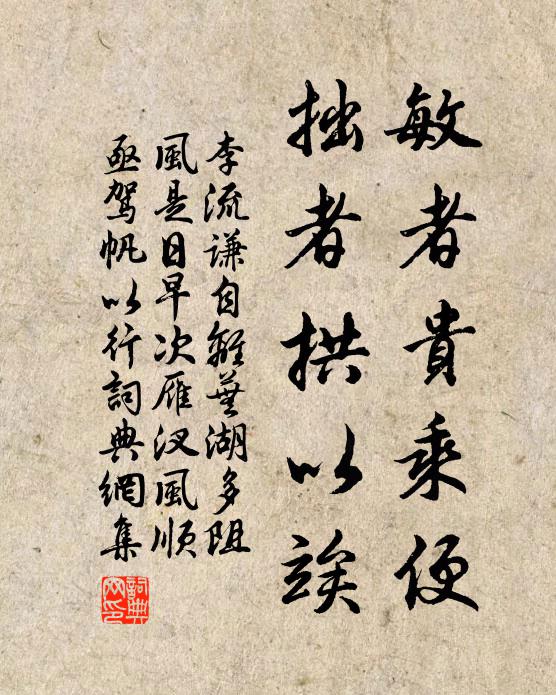 敏者貴乘便
拙者拱以竢
李流謙自離蕪湖多阻
風是日早次雁汊風順
亟駕帆以行詞典網集
詞典網印